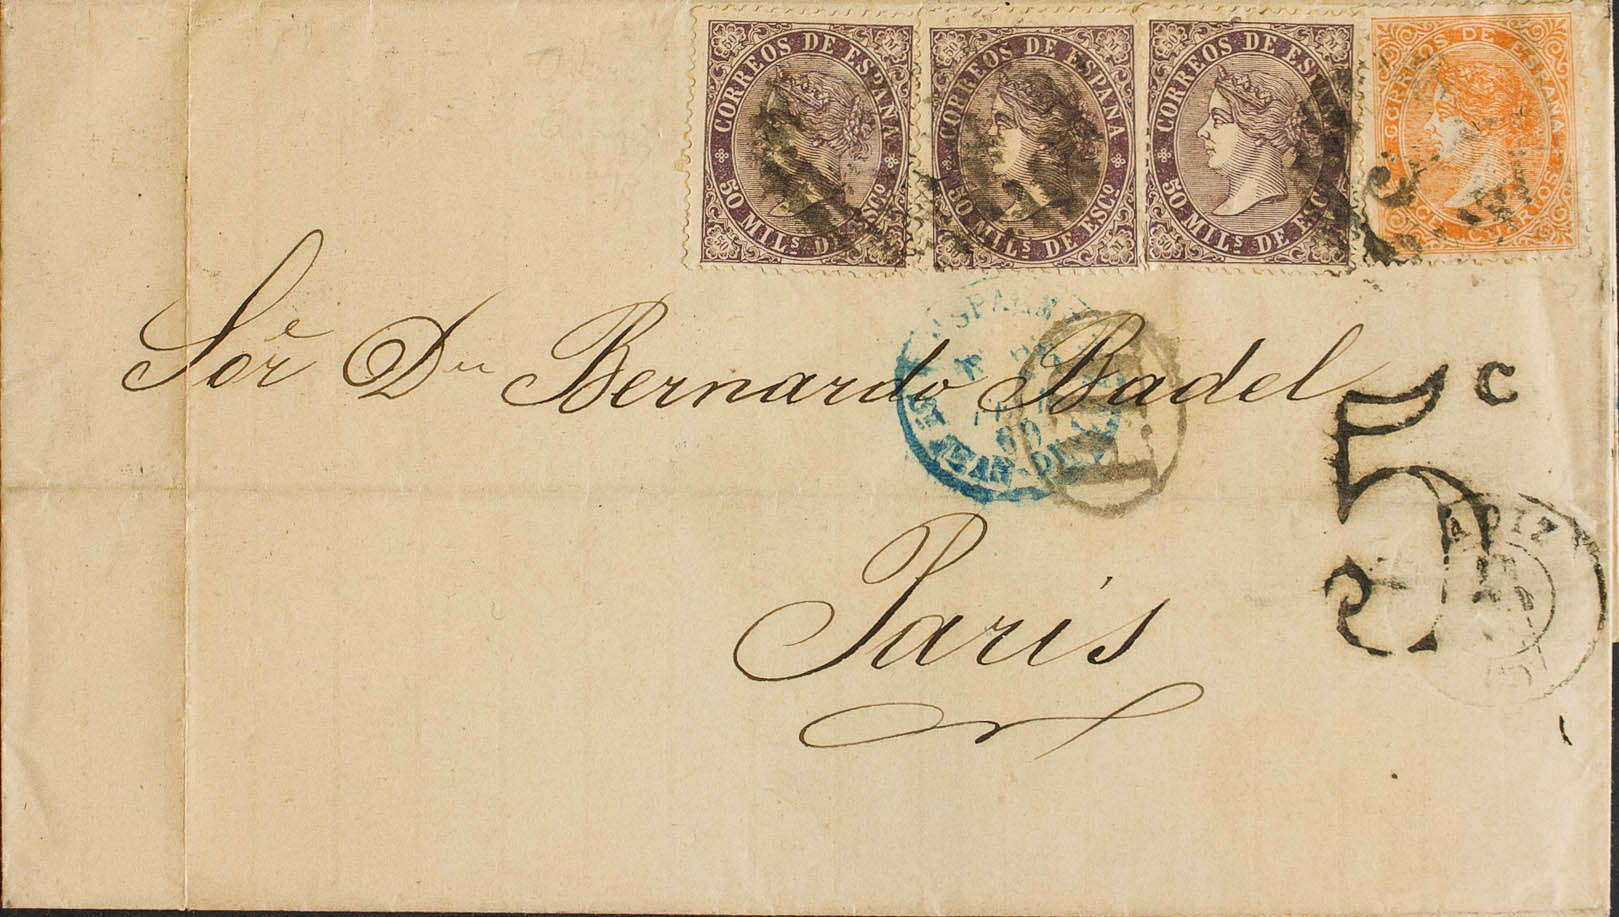 CORREOS DE ESPAÑA
50 MILS DE ESCO
CORREOS DE ESPAÑA
50 MILS DE ESCO
CORREOS DE ESPAÑA
50 MILS DE ESC
CORREOS DE ESPAÑA
Sor e Dn Bernardo Badel
Paris
5 C
ADIZ